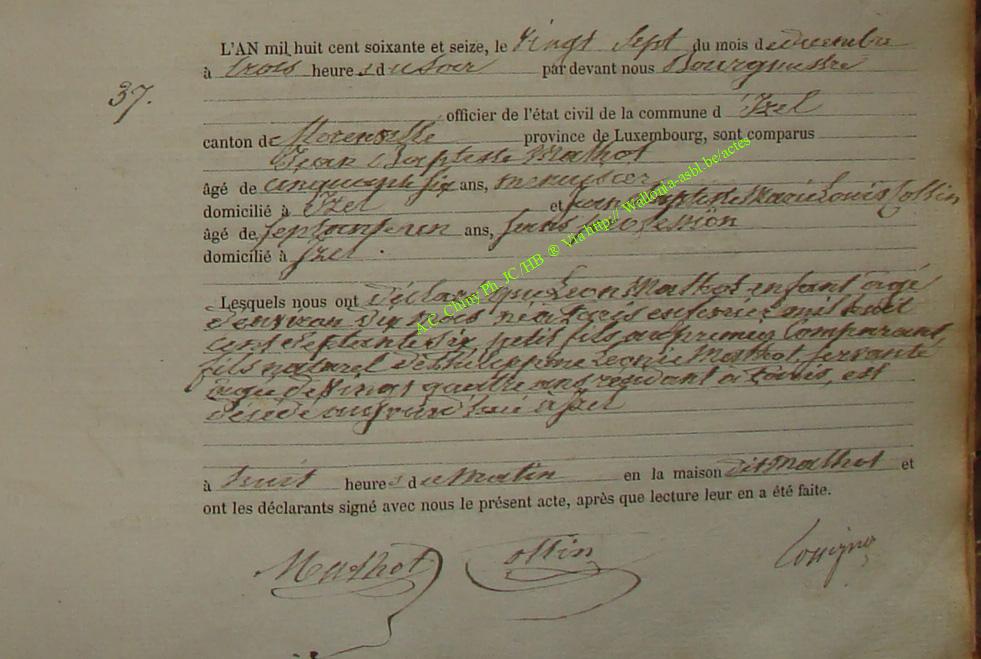 L'AN mil huit cent soixante et seize, le Vingt Sept du mois de decembre
à trois heures du soir par devant nous Bourgmestre
37.
officier de l'état civil de la commune d'Izel
canton de Florenville province de Luxembourg, sont comparus
Jean Baptiste Mathot
âgé de cinquante six ans, menuisier
domicilié à Izel et Jean Baptiste Marie Louis Collin
âgé de septante un ans, sans profession
domicilié à Izel.
Lesquels nous ont déclaré que Leon Mathot enfant agé
d'environ dix mois né à Paris en février mil huit
cent septante six, petit fils au premier Comparant,
fils naturel de Philippine Leonie Mathot, servante
agée de vingt quatre ans résidant à Paris, est
décédé aujourd'hui à Izel
à huit heures du Matin en la maison dit Mathot et
ont les déclarants signé avec nous le présent acte, après que lecture leur en a été faite.
Mathot Collin
A.C. Chiny Ph. JC/HB ® Via http:// Wallonia-asbl.be/actes